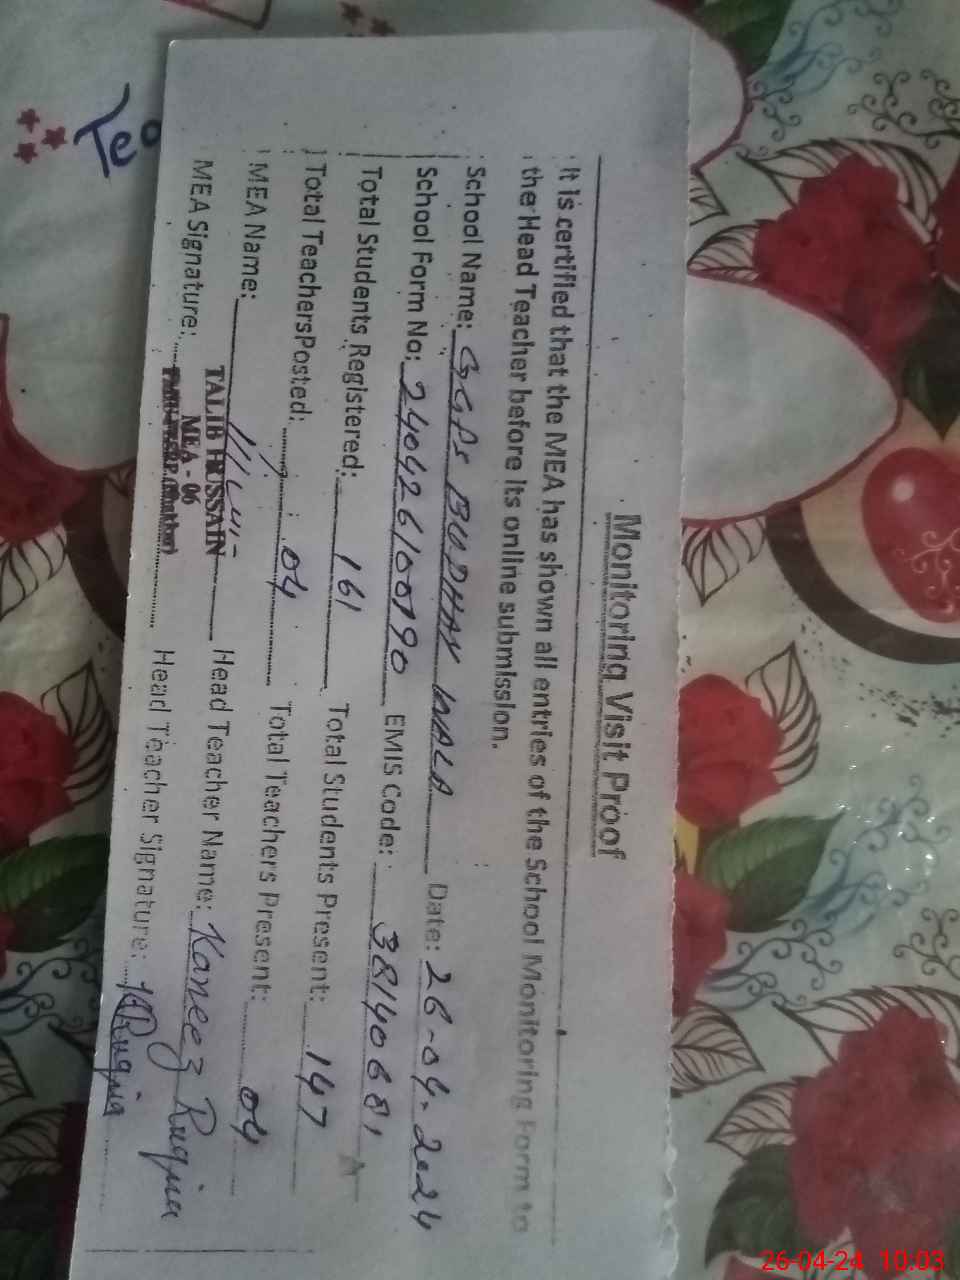 Monitoring Visit Proof
It is certified that the MEA has shown all entries of the School Monitoring Form to
the Head Teacher before its online submission.
School Name: GGPS BUDHAN WALA Date: 26-04-2024
School Form No: 240426100790 EMIS Code: 38140681
Total Students Registered: 161 Total Students Present: 147
Total TeachersPosted: 04 Total Teachers Present: 04
MEA Name: Head Teacher Name: Kaneez Ruqia
TALIB HUSSAIN
MEA - 06
MEA Signature: Head Teacher Signature: KRuqia
Tea
26-04-24 10:03